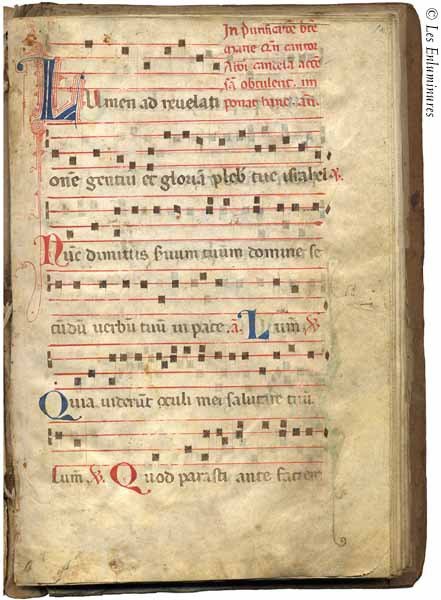 In Purificatione bte
marie cum cantor
candela
obtulerit im
ponat hanc an.
Lumen ad revelati
onem gentiū et gloriā pleb tue israhel. ℣.
Nūc dimittis servum tuum domine se
cūdū verbū tuū in pace. a. Lum̄. ℣
Quia viderūt oculi mei salutare tuū.
Lum̄. ℣. Quod parasti ante faciem
© Les Enluminures